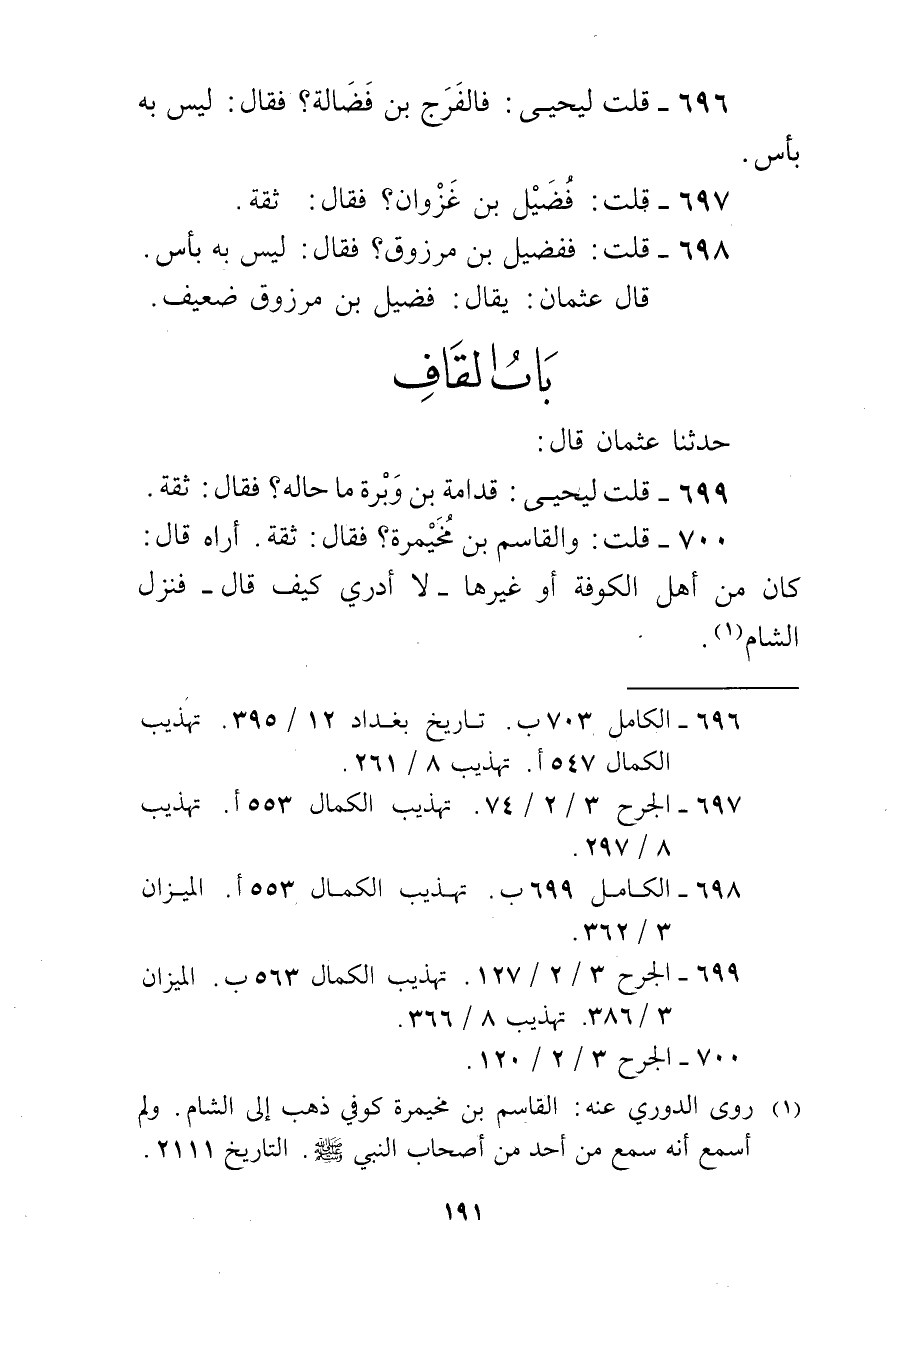 ٦٩٦ ـ قلت ليحيـى : فالفَرَج بن فَضَالة؟ فقال : ليس به
بأس .
٦٩٧ ـ قلت : فُضَيْل بن غَزْوان؟ فقال : ثقة .
٦٩٨ ـ قلت : ففضيل بن مرزوق؟ فقال : ليس به بأس .
قال عثمان : يقال : فضيل بن مرزوق ضعيف .
بَابُ القَافِ
حدثنا عثمان قال :
٦٩٩ ـ قلت ليحيـى : قدامة بن وَبْرة ما حاله؟ فقال : ثقة .
٧٠٠ ـ قلت : والقاسم بن مُخَيْمرة؟ فقال : ثقة . أراه قال :
كان من أهل الكوفة أو غيرها ـ لا أدري كيف قال ـ فنزل
الشام(١) .
٦٩٦ ـ الكامل ٧٠٣ ب . تاريخ بغداد ١٢ / ٣٩٥ . تهذيب
الكمال ٥٤٧ أ . تهذيب ٨ / ٢٦١ .
٦٩٧ ـ الجرح ٣ / ٢ / ٧٤ . تهذيب الكمال ٥٥٣ أ . تهذيب
٨ / ٢٩٧ .
٦٩٨ ـ الكامل ٦٩٩ ب . تهذيب الكمال ٥٥٣ أ . الميزان
٣ / ٣٦٢ .
٦٩٩ ـ الجرح ٣ / ٢ / ١٢٧ . تهذيب الكمال ٥٦٣ ب . الميزان
٣ / ٣٨٦ . تهذيب ٨ / ٣٦٦ .
٧٠٠ ـ الجرح ٣ / ٢ / ١٢٠ .
(١) روى الدوري عنه : القاسم بن مخيمرة كوفي ذهب إلى الشام . ولم
أسمع أنه سمع من أحد من أصحاب النبي ﷺ . التاريخ ٢١١١ .
١٩١